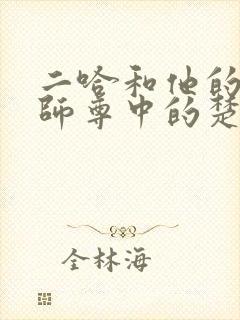 二哈和他的
师尊中的楚
全林海